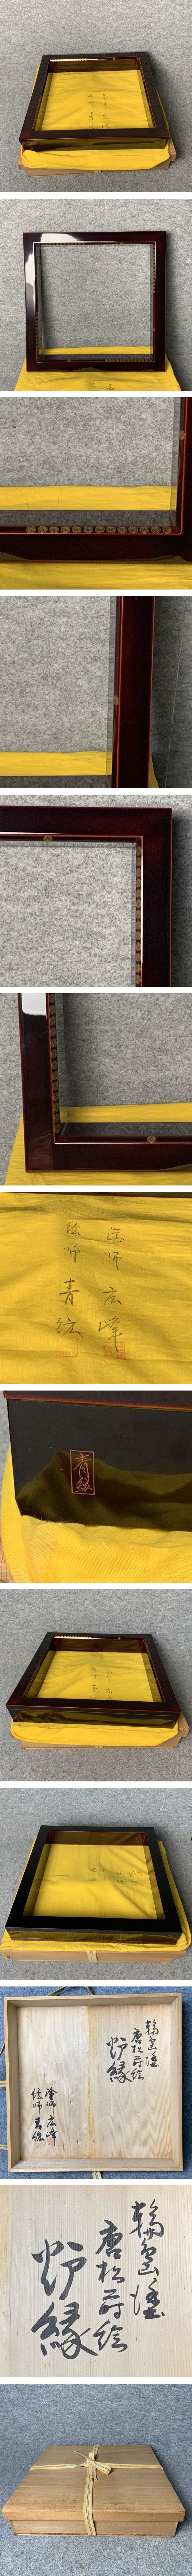 塗師 広峰
絵師 青絃
青絃
輪島塗
唐松蒔絵
炉縁
塗師 広峰
絵師 青絃
輪島塗
唐松蒔絵
炉縁